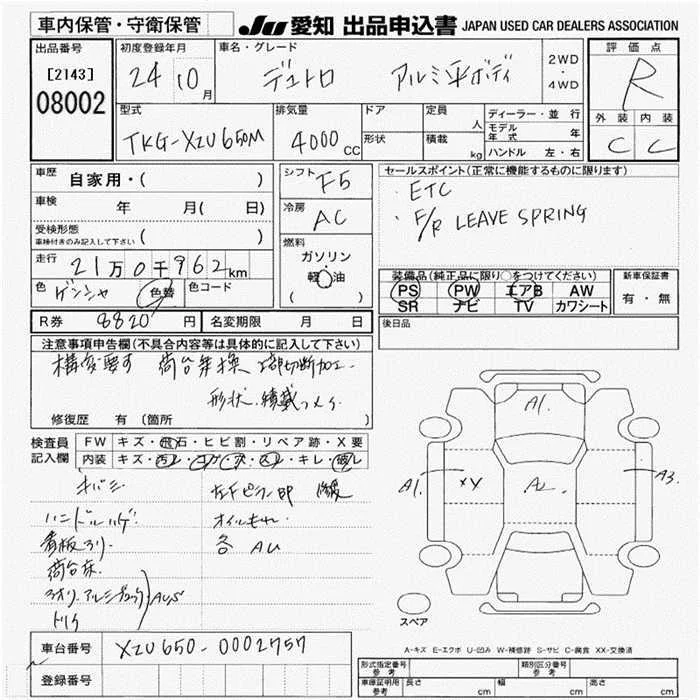 車内保管・守衛保管
JU 愛知 出品申込書 JAPAN USED CAR DEALERS ASSOCIATION
出品番号 初度登録年月 車名・グレード 評価点
[2143] 24 10月 デュトロ アルミ平ボディ 2WD・4WD R
08002
型式 排気量 ドア 定員 人 ディーラー・並行 外装 内装
TKG-XZU650M 4000CC 形状 積載 kg モデル年式 年 C C
ハンドル 左・右
車歴 自家用・( ) シフト F5 セールスポイント(正常に機能するものに限ります)
・ETC
車検 年 月( 日) 冷房 AC ・F/R LEAVE SPRING
受検形態 車検付きのみ記入して下さい ( )
走行 21万0千962km 燃料 ガソリン 軽油 ( )
装備品(純正品に限り○をつけてください) 新車保証書
色 ゲンシャ 色替 色コード PS PW エアB AW 有・無
SR ナビ TV カワシート
R券 8820円 名変期限 月 日 後日品
注意事項申告欄(不具合内容等は具体的に記入して下さい)
構変要す 荷台架換
形状、積載
修復歴 有 (箇所 )
検査員記入欄 FW キズ・飛石・ヒビ割・リペア跡・X要
内装 キズ・汚レ・コゲ・穴・スレ・キレ・破レ
ハンドルハゲ オイルもれ
看板 各AU
荷台床
A1. A1. XY A2. A3.
スペア
A-キズ E-エクボ U-凹み W-補修跡 S-サビ C-腐食 XX-交換済
車台番号 XZU650-0002757
登録番号
形式指定番号 参考 類別区分番号 参考
車庫証明用 参考 長さ cm 幅 cm 高さ cm